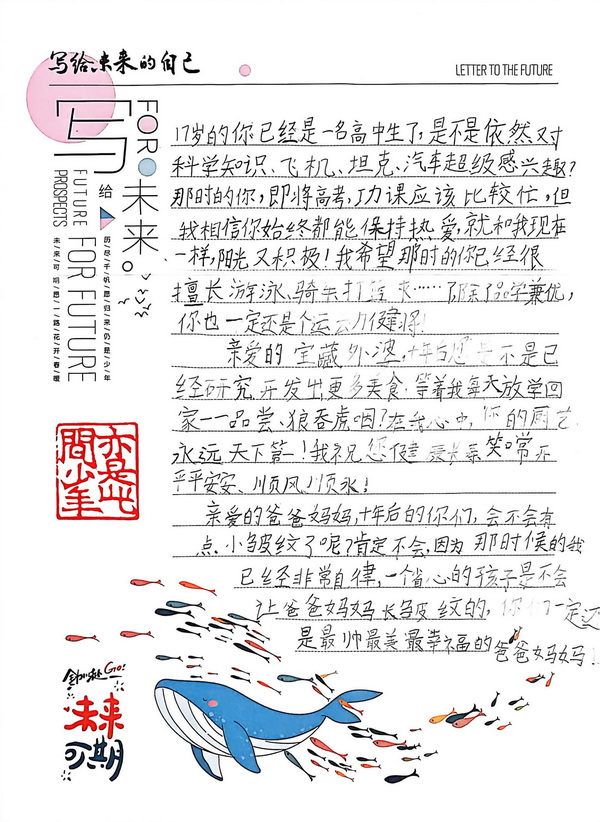 写给未来的自己
LETTER TO THE FUTURE
写
给
未来。
FOR
FUTURE
PROSPECTS
FOR FUTURE
历尽千帆愿归来仍是少年
未来可期愿一路花开春暖
17岁的你已经是一名高中生了,是不是依然对
科学知识、飞机、坦克、汽车超级感兴趣?
那时的你,即将高考,功课应该比较忙,但
我相信你始终都能保持热爱,就和我现在
一样,阳光又积极!我希望那时的你已经很
擅长游泳、骑车打篮球……了除了品学兼优,
你也一定还是个运动健将!
亲爱的宝藏外婆,十年后您是不是已
经研究、开发出更多美食,等着我每天放学回
家一一品尝、狼吞虎咽?在我心中,你的厨艺
永远天下第一!我祝您健康长寿笑常
平平安安、川页风川页水!
亲爱的爸爸妈妈,十年后的你们,会不会有
点小皱纹了呢?肯定不会,因为那时候的我
已经非常自律,一个省心的孩子是不会
让爸爸妈妈长皱纹的,你们一定还
是最帅最美最幸福的爸爸妈妈!
亦是此
間少年
Go!
未来
可期